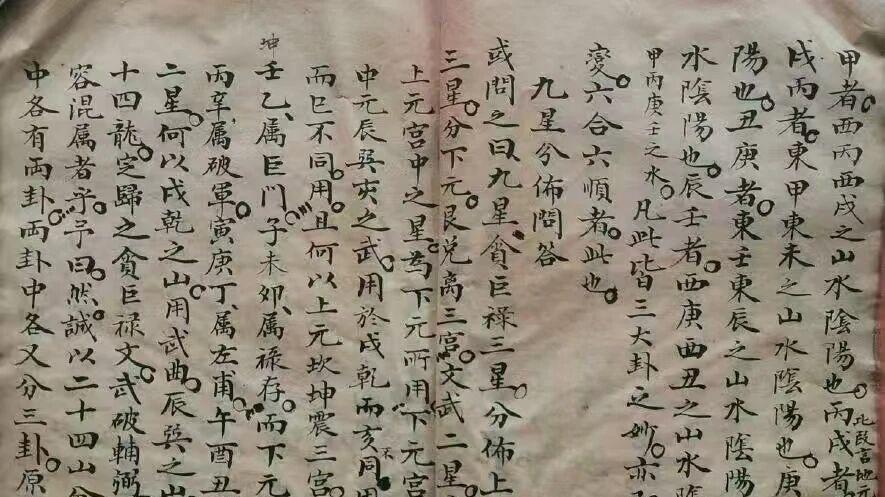 甲者西丙西戌之山水陰陽也丙戌者
此段言地元
戌丙者東甲東未之山水陰陽也庚
陽也丑庚者東壬東辰之山水陰陽
水陰陽也辰壬者西庚西丑之山水陰
甲丙庚壬之水凡此皆三大卦之妙亦
變六合六順者此也
九星分佈問答
或問之曰九星貪巨祿三星分佈上
三星分下元艮兌離三宮文武二星
上元宮中之星為下元所用下元宮
中元辰巽亥之武用於戌乾而亥不同
而已不同用且何以上元坎坤震三宮
坤
壬乙属巨門子未卯属祿存而下元
丙辛属破軍寅庚丁属左甫午酉丑
二星何以戌乾之山用武曲辰巽之山
十四龍定歸之貪巨祿文武破輔弼
容混属者乎予曰然誠以二十四山分
中各有両卦両卦中各又分三卦原